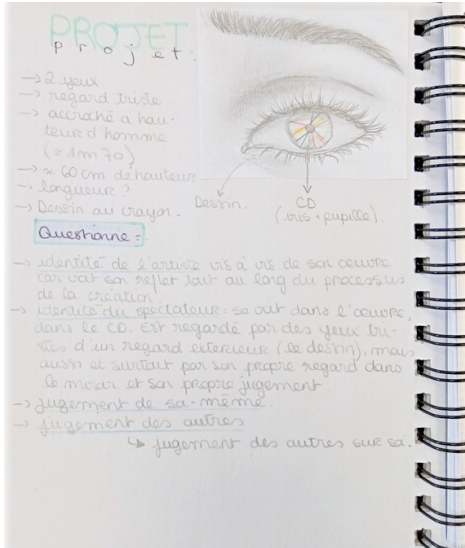 PROJET
projet :
→ 2 yeux
→ regard triste
→ accroché a hau-
teur d'homme
(≈ 1m70)
→ ≈ 60 cm de hauteur
→ longueur ?
→ Dessin au crayon.
Dessin.
CD
(iris + pupille).
Questionne :
→ identité de l'artiste vis à vis de son oeuvre
car voit son reflet tout au long du processus
de la création.
→ identité du spectateur : se voit dans l'oeuvre,
dans le CD. Est regardé par des yeux tri-
stes d'un regard exterieur (le dessin), mais
aussi et surtout par son propre regard dans
le miroir et son propre jugement.
→ jugement de soi-même.
→ jugement des autres
↳ jugement des autres sur soi.